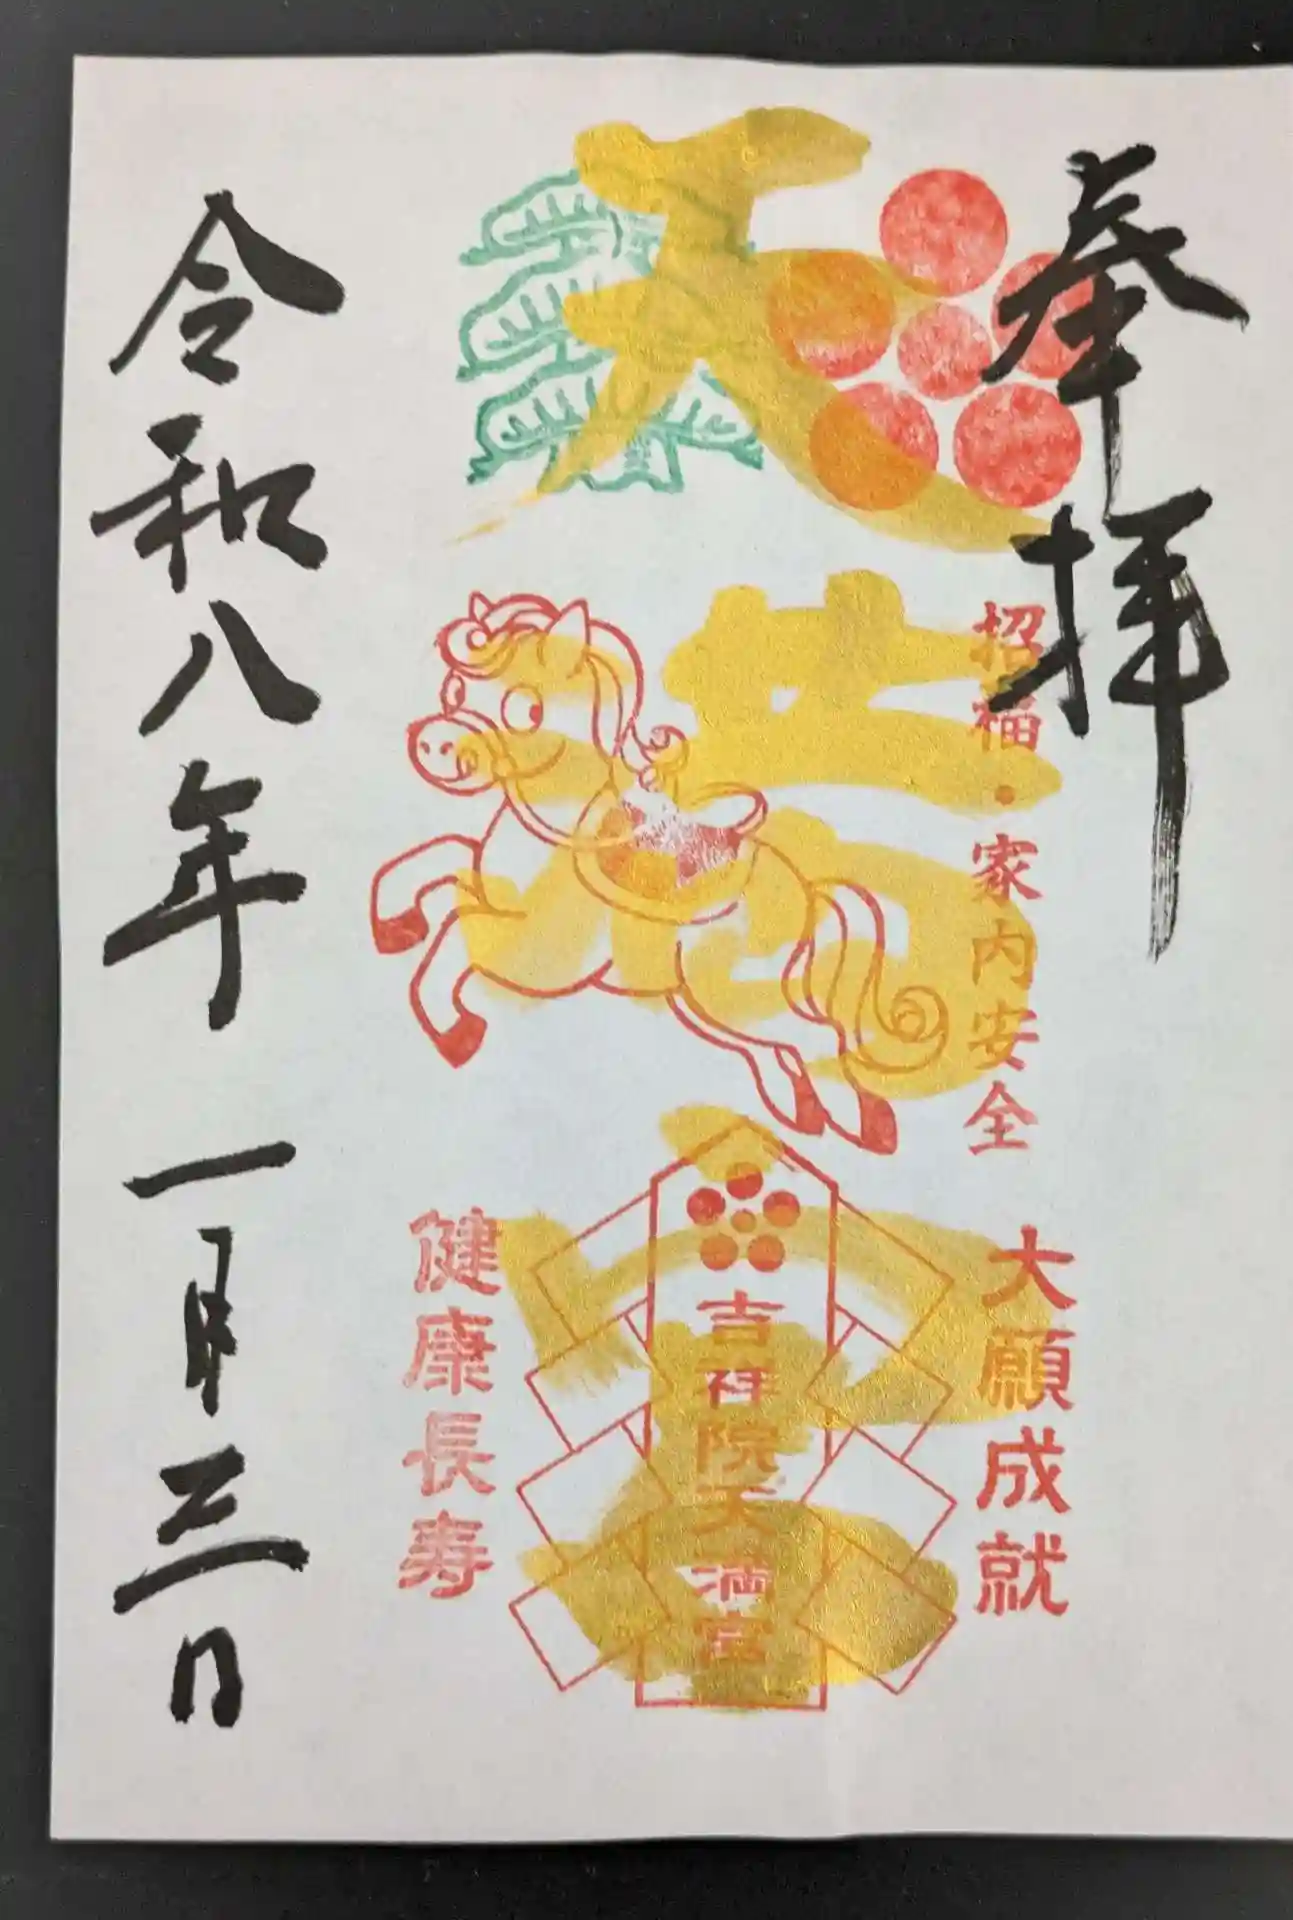 奉拝
招福・家内安全
大願成就
天満宮
吉祥院天満宮
健康長寿
令和八年 一月三日